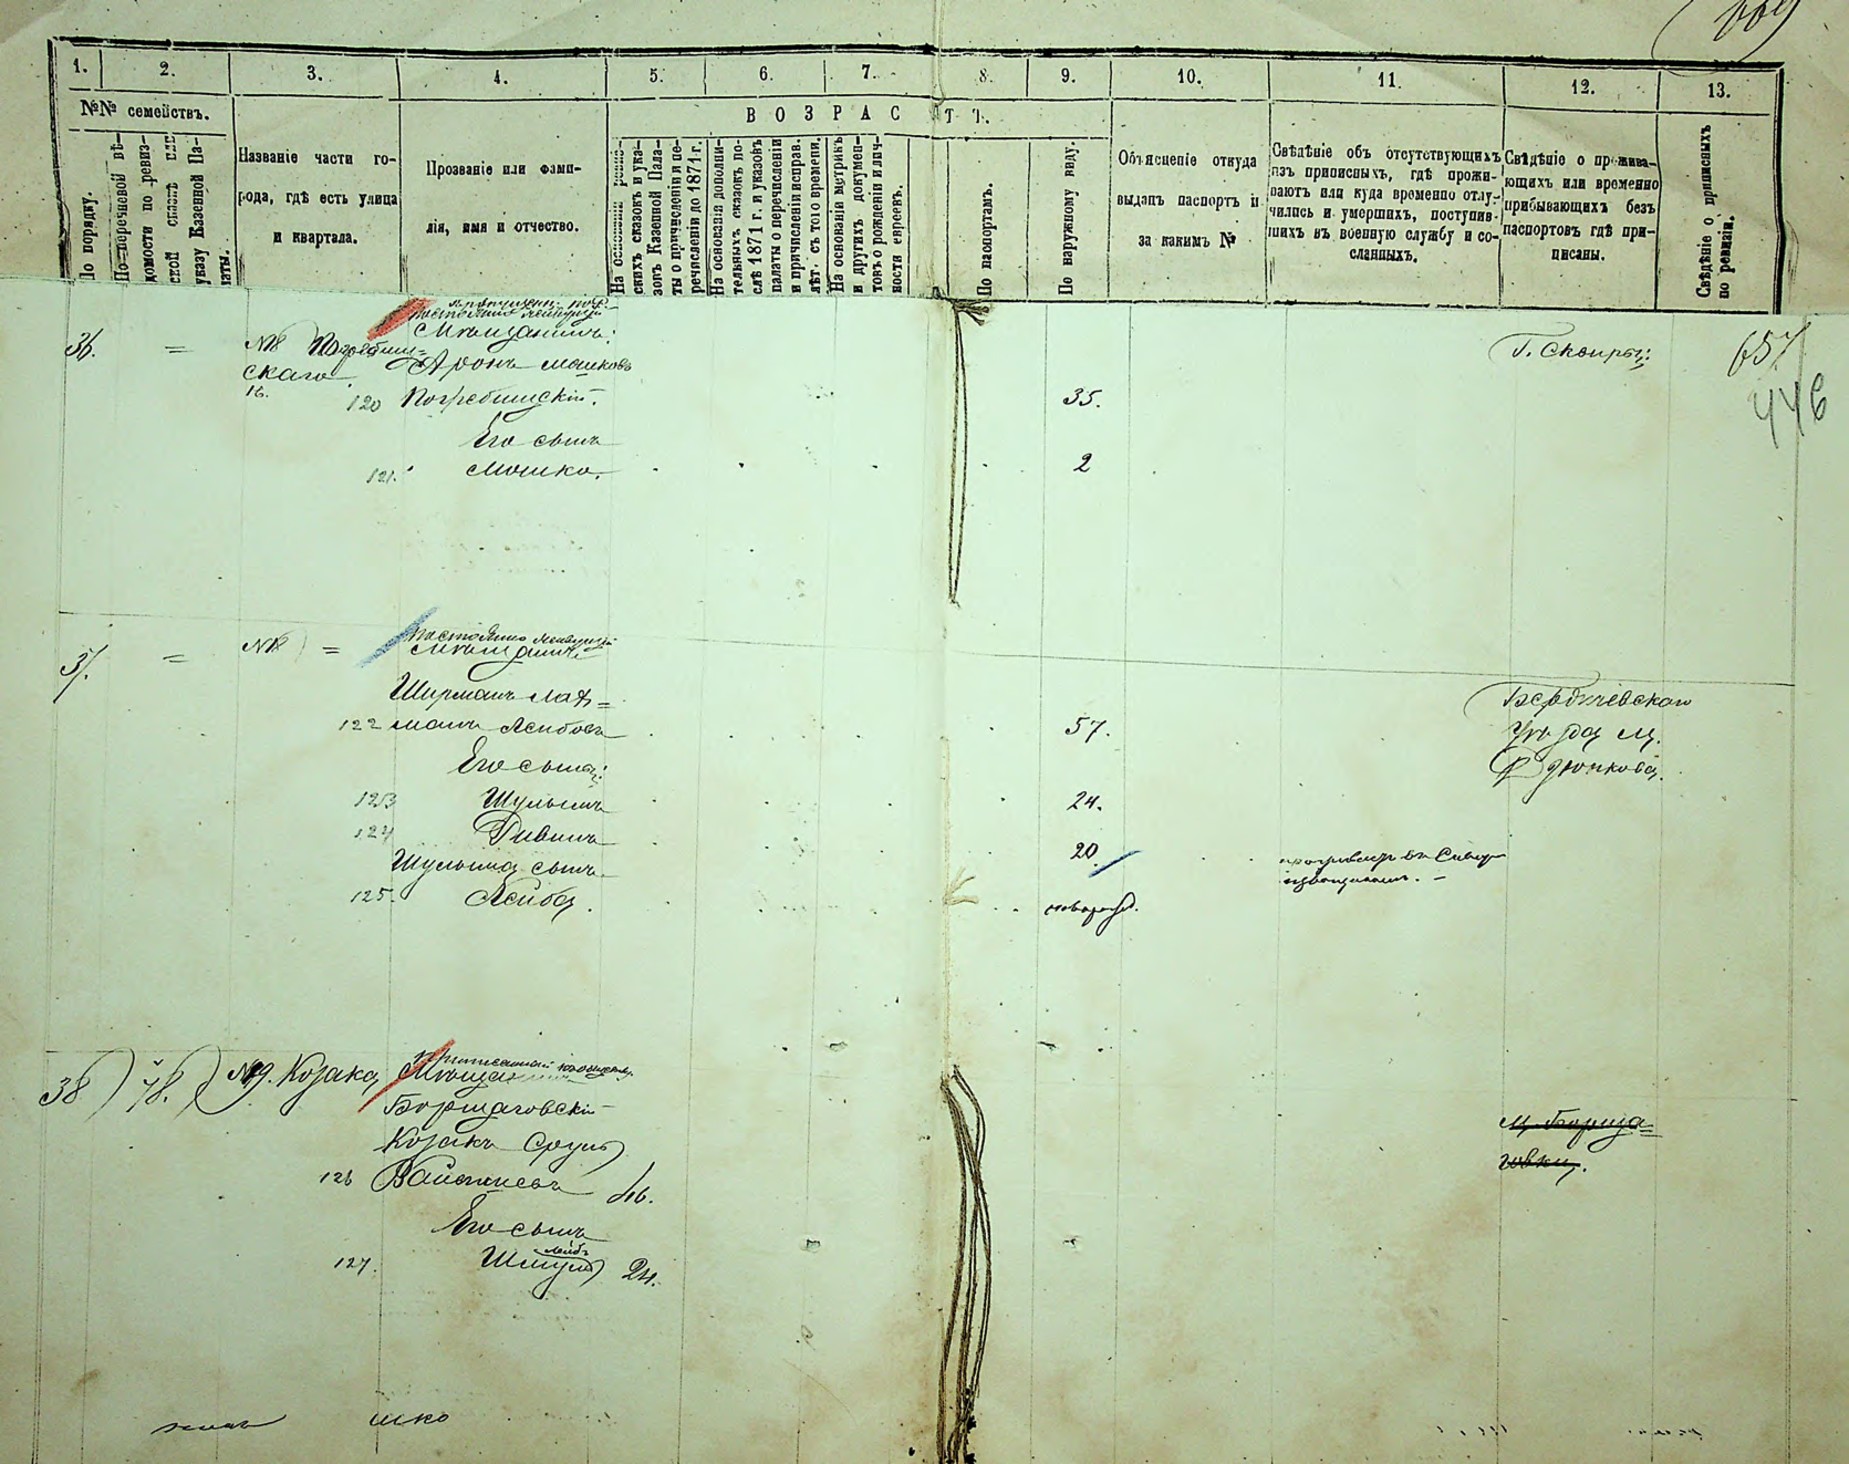 1. 2. 3. 4. 5. 6. 7. 8. 9. 10. 11. 12. 13.
№№ семействъ.
ВОЗРАСТЪ.
По порядку.
По перечневой вѣ-
домости по ревиз-
ской сказкѣ или
указу Казенной Па-
латы.
Названіе части го-
рода, гдѣ есть улица
и квартала.
Прозваніе или фами-
лія, имя и отчество.
На основаніи реви-
скихъ сказокъ и ука-
зовъ Казенной Пала-
ты о причисленіи и пе-
речисленіи до 1871 г.
На основаніи дополни-
тельныхъ сказокъ по-
слѣ 1871 г. и указовъ
палаты о перечисленіи
и причисленіи исправ.
лѣт. съ того времени.
На основаніи метрикъ
и другихъ докумен-
товъ о рожденіи и лич-
ности евреевъ.
По паспортамъ.
По наружному виду.
Объясненіе откуда
выданъ паспортъ и
за какимъ №
Свѣдѣніе объ отсутствующихъ
изъ приписныхъ, гдѣ прожи-
ваютъ или куда временно отлу-
чились и умершихъ, поступив-
шихъ въ военную службу и со-
сланныхъ.
Свѣдѣніе о прожива-
ющихъ или временно
прибывающихъ безъ
паспортовъ гдѣ при-
писаны.
Свѣдѣніе о приписныхъ
по ревизіи.
657
446
36. = №8 Погребищ-
скаго
Мѣщанинъ:
Аронъ Мошковъ
120 Погребискій. 35. Г. Сквиры:
Его сынъ
121. Мошко. 2
37. = №8 =
Мѣщанинъ
Ширманъ Лах=
122 манъ Лейбовъ 57. Бердичевскаго
Уѣзда м.
Его сыны:
123 Шулимъ 24.
124 20.
Шулима сынъ
125. Лейба.
38) 48.) №9. Козака
Борщаговскій
Козакъ Сруль
126 46. м. Борща=
говки.
Его сынъ
127. Шмуль Лейбъ 24.
шко